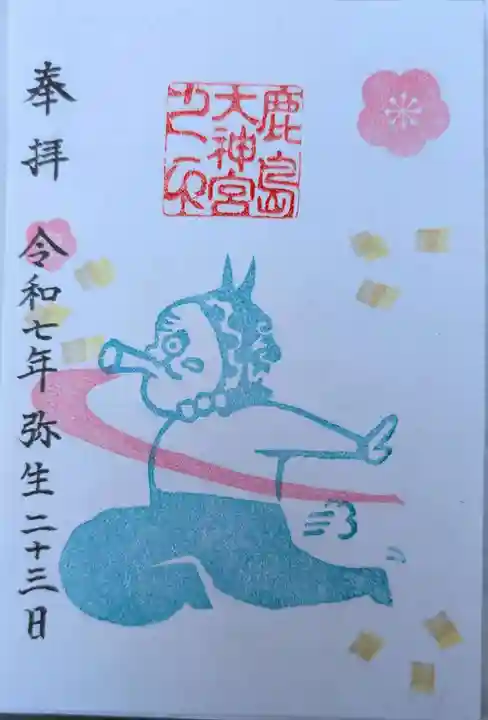 奉拝
令和七年 弥生二十三日
鹿島
大神宮